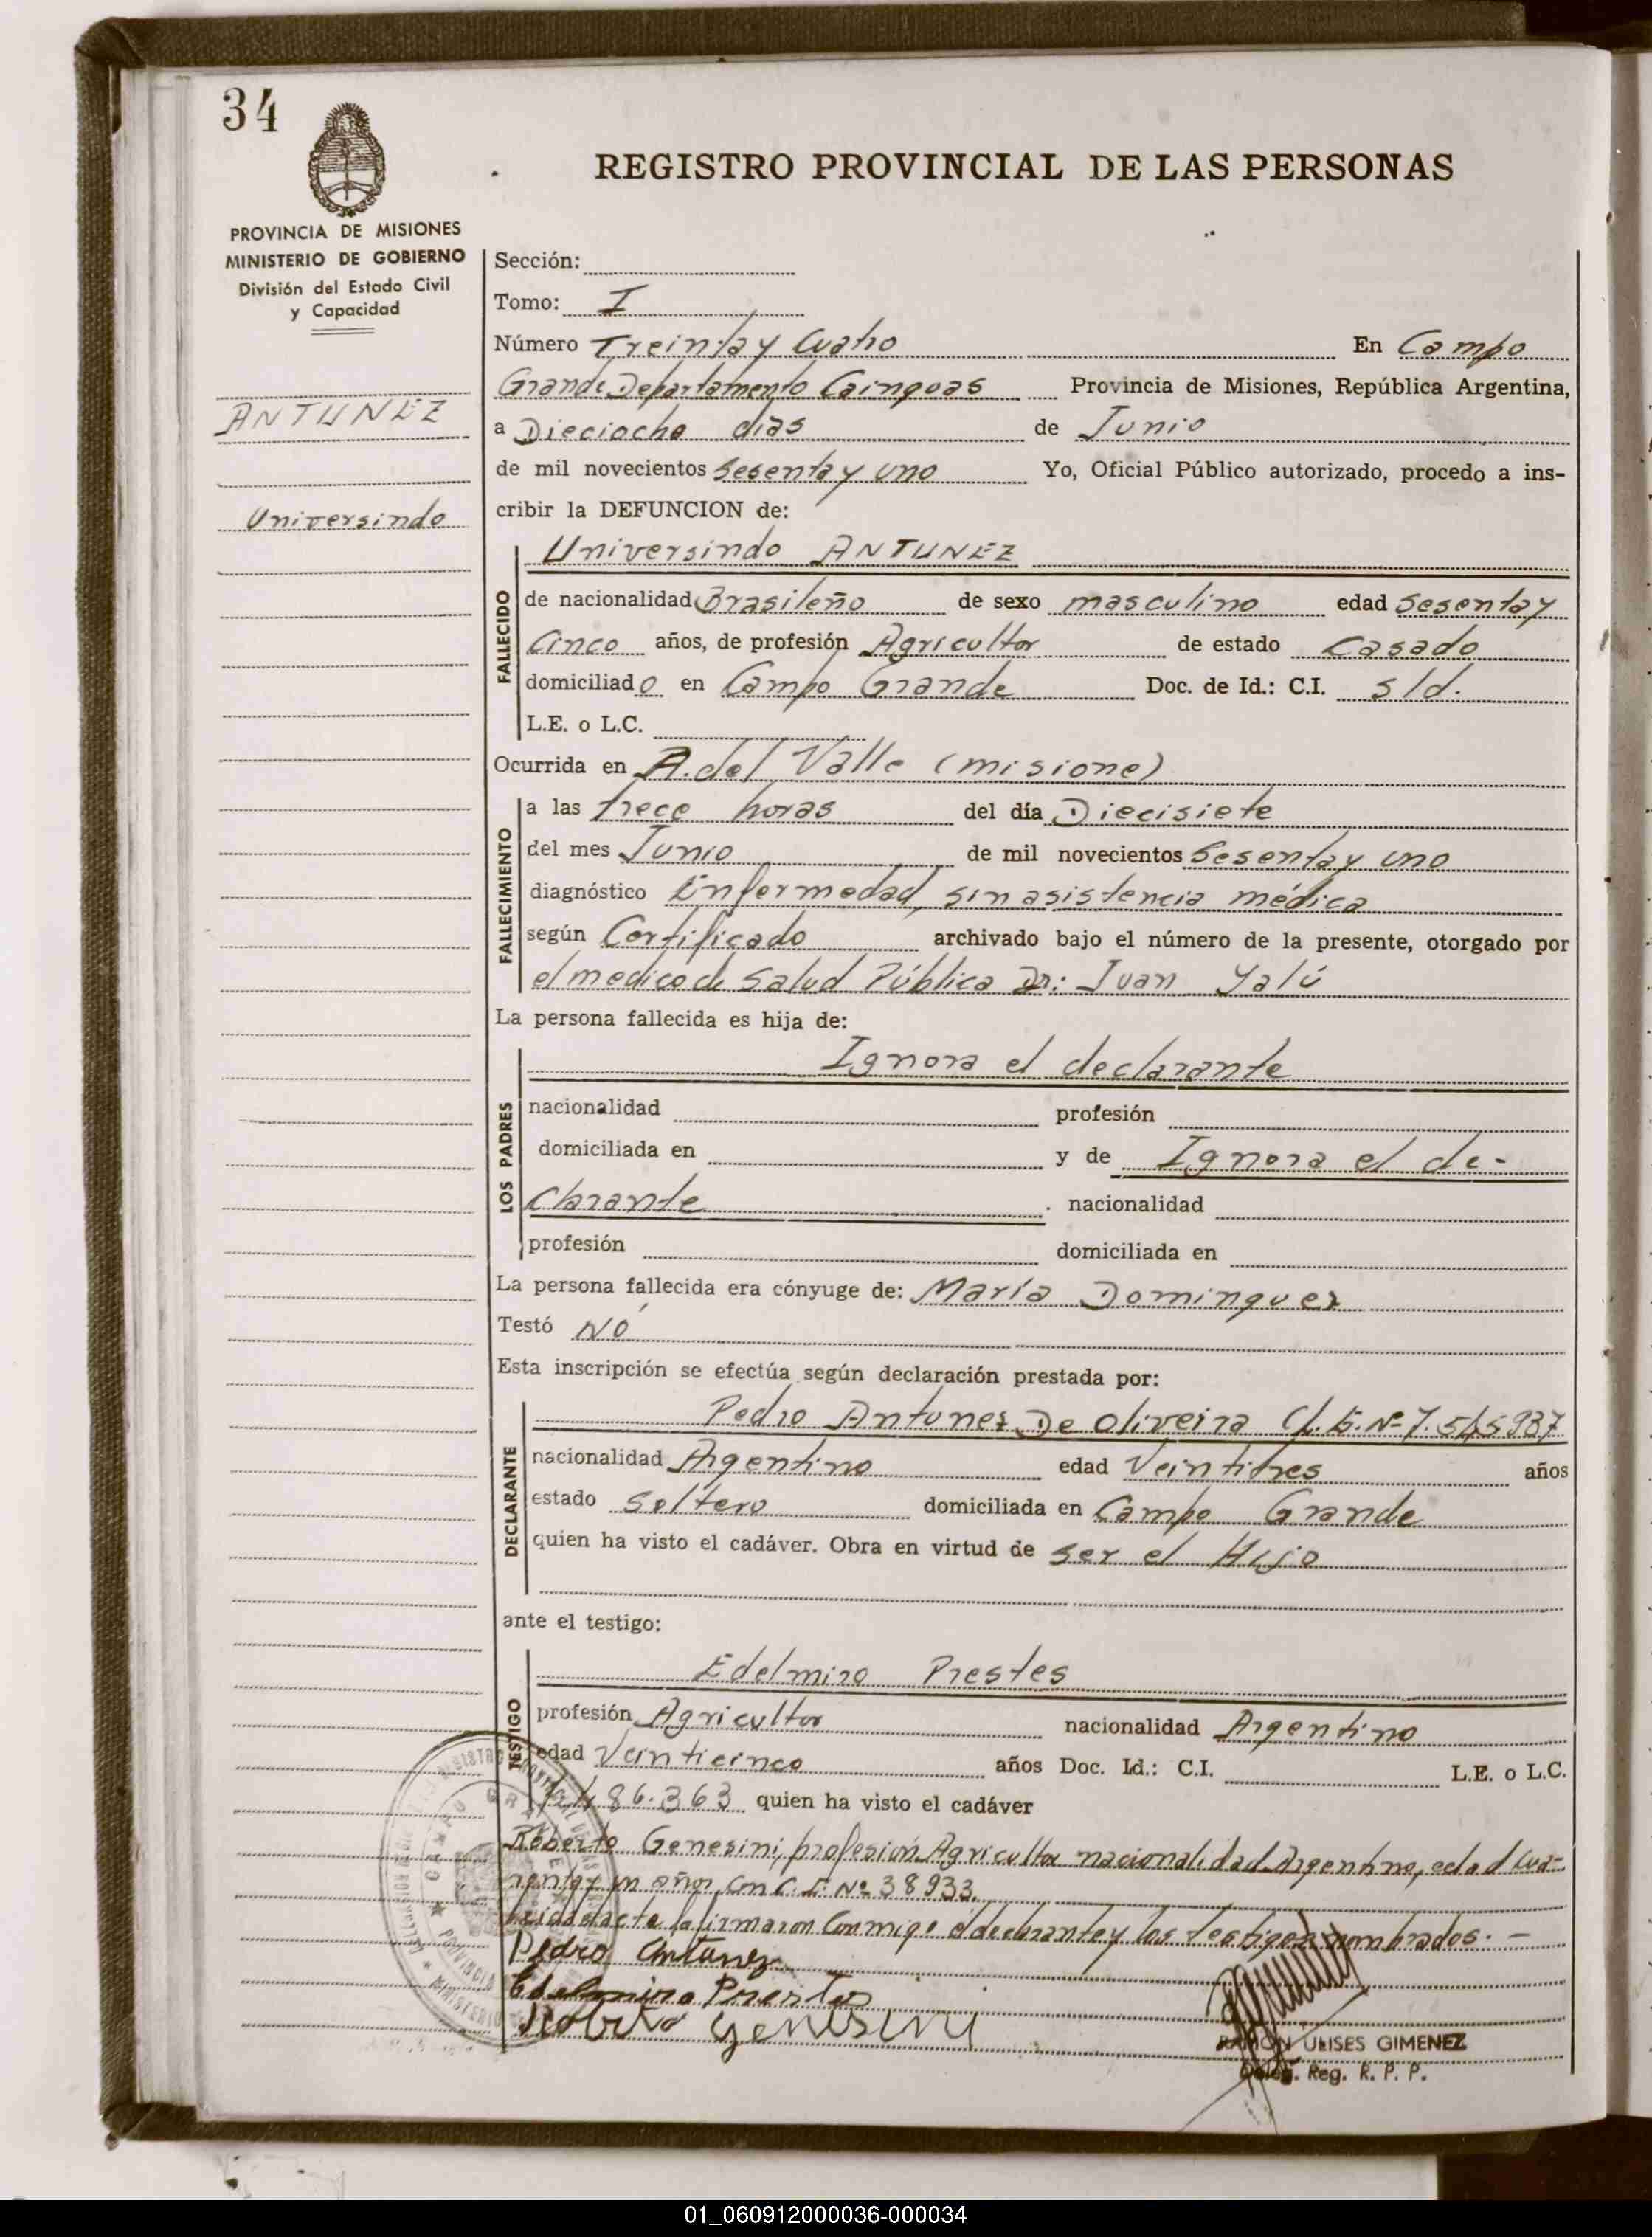 34
REGISTRO PROVINCIAL DE LAS PERSONAS
PROVINCIA DE MISIONES
MINISTERIO DE GOBIERNO
División del Estado Civil
y Capacidad
ANTUNEZ
Universindo
Sección:
Tomo: I
Número Treinta y Cuatro En Campo
Grande Departamento Cainguas Provincia de Misiones, República Argentina,
a Dieciocho dias de Junio
de mil novecientos Sesenta y uno Yo, Oficial Público autorizado, procedo a ins-
cribir la DEFUNCION de:
Universindo ANTUNEZ
FALLECIDO
de nacionalidad Brasileño de sexo masculino edad Sesenta y
Cinco años, de profesión Agricultor de estado Casado
domiciliado en Campo Grande Doc. de Id.: C.I. s/d.
L.E. o L.C.
Ocurrida en A. del Valle (misione)
FALLECIMIENTO
a las trece horas del día Diecisiete
del mes Junio de mil novecientos Sesenta y uno
diagnóstico Enfermedad, sin asistencia médica
según Certificado archivado bajo el número de la presente, otorgado por
el medico de Salud Pública Dr: Juan Yalú
La persona fallecida es hija de:
LOS PADRES
Ignora el declarante
nacionalidad profesión
domiciliada en y de Ignora el de-
clarante nacionalidad
profesión domiciliada en
La persona fallecida era cónyuge de: María Dominguez
Testó NO
Esta inscripción se efectúa según declaración prestada por:
DECLARANTE
Pedro Antunez De Oliveira
nacionalidad Argentino edad Veintitres años
estado Soltero domiciliada en Campo Grande
quien ha visto el cadáver. Obra en virtud de ser el Hijo
ante el testigo:
TESTIGO
Edelmiro Prestes
profesión Agricultor nacionalidad Argentino
edad Veinticinco años Doc. Id.: C.I. L.E. o L.C.
86.363 quien ha visto el cadáver
Roberto Genesini, profesión Agricultor nacionalidad Argentino, edad cua-
renta y un años, con C. I. Nº 38933.
Leida el acta la firmaron conmigo el declarante y los testigos nombrados. —
Pedro Antunez
Edelmiro Prestes
Roberto Genesini
RAMON ULISES GIMENEZ
Deleg. Reg. R. P. P.
01_060912000036-000034